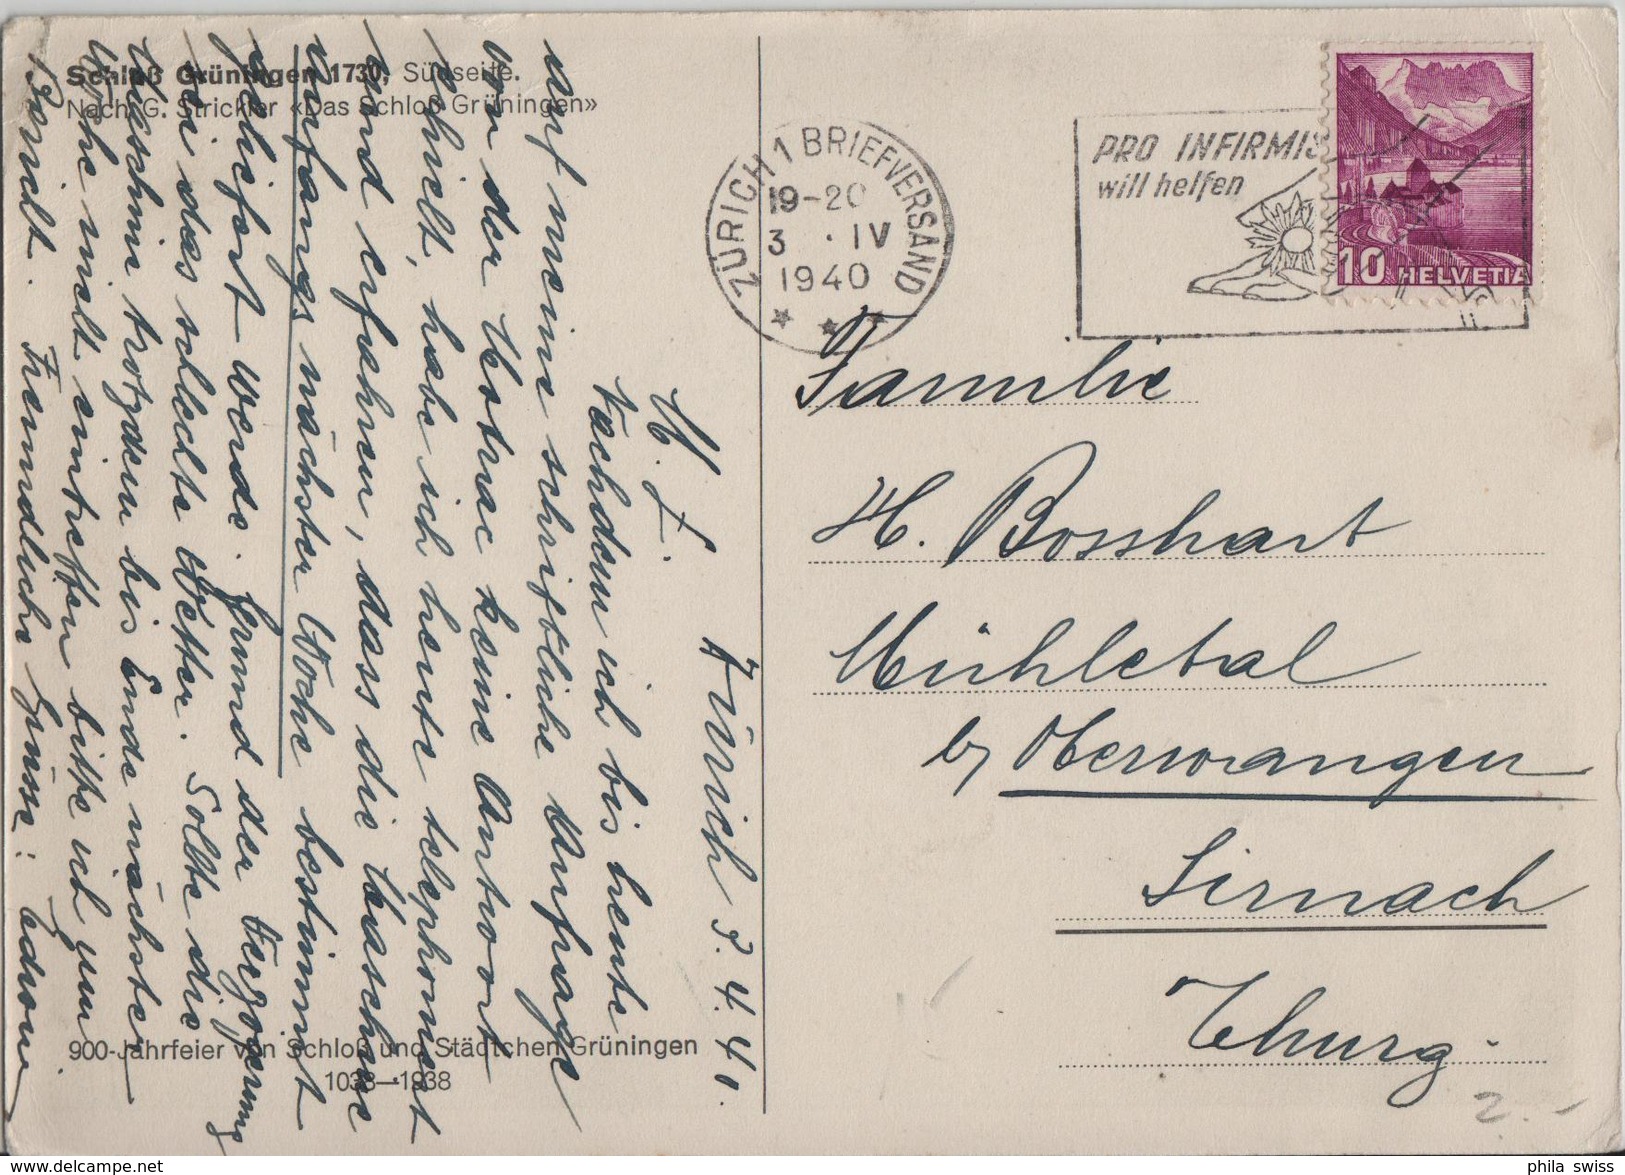 Schloß Grüningen 1730, Südseite.
Nach G. Strickler «Das Schloß Grüningen»
Zürich 3.4.40.
M. L.
Nachdem ich bis heute
auf meine schriftliche Anfrage
von der Motrac keine Antwort
erhielt, habe ich heute telephoniert
und erfahren, dass die Maschine
anfangs nächster Woche bestimmt
geliefert werde. Grund der Verzögerung
sei das schlechte Wetter. Sollte die
Maschine trotzdem bis Ende nächster
Woche nicht eintreffen bitte ich um
Bericht. Freundliche Grüsse: Edwin
900-Jahrfeier von Schloß und Städtchen Grüningen
1038—1938
ZÜRICH 1 BRIEFVERSAND
19-20
3 · IV
1940
PRO INFIRMIS
will helfen
10 HELVETIA
Familie
H. Bosshart
Mühletal
by Oberwangen
Sirnach
Thurg.
2.-
phila swiss